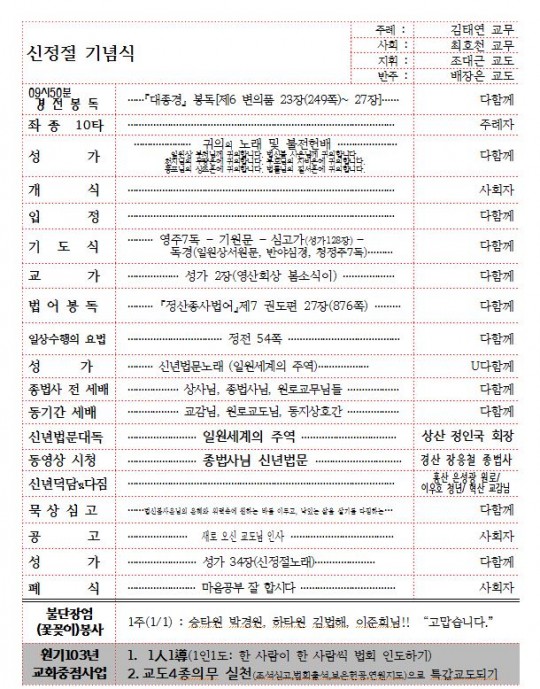 신정절 기념식
주례 : 김태연 교무
사회 : 최호천 교무
지휘 : 조대근 교도
반주 : 배장은 교도
09시50분
경전봉독 ……『대종경』 봉독[제6 변의품 23장(249쪽)~ 27장]…… 다함께
좌종 10타 주례자
성 가 귀의의 노래 및 불전헌배 다함께
개 식 사회자
입 정 다함께
기 도 식 영주7독 - 기원문 - 심고가(성가128장) -
독경(일원상서원문, 반야심경, 청정주7독) 다함께
교 가 성가 2장(영산회상 봄소식이) 다함께
법어봉독 『정산종사법어』제7 권도편 27장(876쪽) 다함께
일상수행의 요법 정전 54쪽 다함께
성 가 신년법문노래 (일원세계의 주역) U다함께
종법사 전 세배 상사님, 종법사님, 원로교무님들 다함께
동기간 세배 교감님, 원로교도님, 동지상호간 다함께
신년법문대독 일원세계의 주역 상산 정인국 회장
동영상 시청 종법사님 신년법문 경산 장응철 종법사
신년덕담&다짐 홍산 은성광 원로/
이우호 청년/ 혁산 교감님
묵상심고 다함께
공 고 새로 오신 교도님 인사 사회자
성 가 성가 34장(신정절노래) 다함께
폐 식 마음공부 잘 합시다 사회자
불단장엄
(꽃꽂이)봉사 1주(1/1) : 승타원 박경원, 하타원 김법해, 이준희님!! “고맙습니다.”
원기103년
교화중점사업 1. 1人1導(1인1도: 한 사람이 한 사람씩 법회 인도하기)
2. 교도4종의무 실천(조석심고,법회출석,보은헌공,연원지도)으로 특갑교도되기